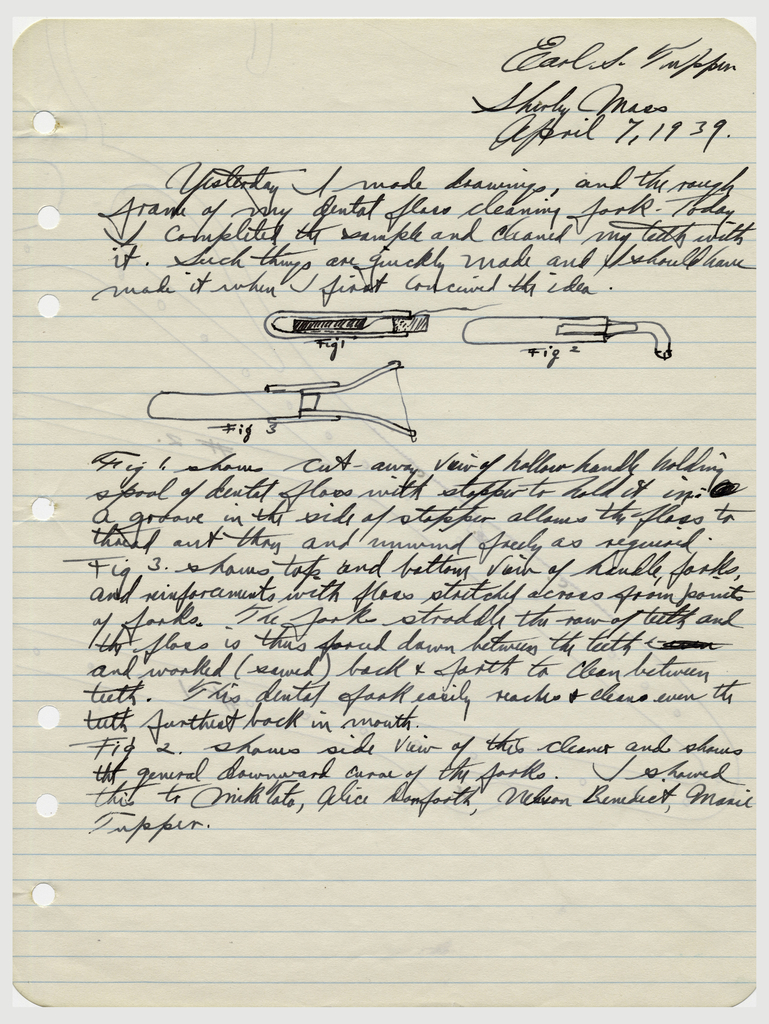 Earl S. Tupper
Shirley Mass
April 7, 1939.
Yesterday I made drawings, and the rough
frame of my dental floss cleaning fork. Today
I completed the sample and cleaned my teeth with
it. Such things are quickly made and I should have
made it when I first conceived the idea.
Fig 1
Fig 2
Fig 3
Fig 1. shows cut-away view of hollow handle holding
spool of dental floss with stopper to hold it in.
A groove in the side of stopper allows the floss to
thread out thru and unwind freely as required.
Fig 3. shows top and bottom view of handle, forks,
and reinforcements with floss stretched across from points
of forks. The forks straddle the row of teeth and
the floss is thus forced down between the teeth
and worked (sawed) back & forth to clean between
teeth. This dental fork easily reaches & cleans even the
teeth furthest back in mouth.
Fig 2. shows side view of this cleaner and shows
the general downward curve of the forks. I showed
this to Alice Danforth, Nelson Benedict, Marie
Tupper.